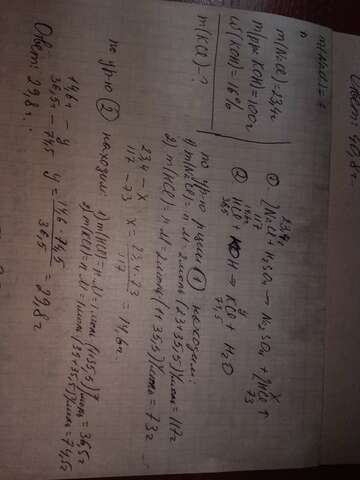 m(NaCl)=23,4г
m(р-ра KOH)=100г
ω(KOH)=16%
m(KCl)-?
23,4 x
① 2NaCl + H2SO4 → Na2SO4 + 2HCl↑
117 73
14,6г y
② HCl + KOH → KCl + H2O
36,5 74,5
по ур-ю ① находим:
1) m(NaCl)=n·M=2моль·(23+35,5)г/моль=117г
2) m(HCl)=n·M=2моль·(1+35,5)г/моль=73г
23,4 – x
117 – 73 x = 23,4·73 / 117 = 14,6г.
по ур-ю ② находим: 1) m(HCl)=n·M=1моль·(1+35,5)г/моль=36,5г
2) m(KCl)=n·M=1моль·(39+35,5)г/моль=74,5г
14,6г – y
36,5 – 74,5 y = 14,6·74,5 / 36,5 = 29,8г
Ответ: 29,8г.